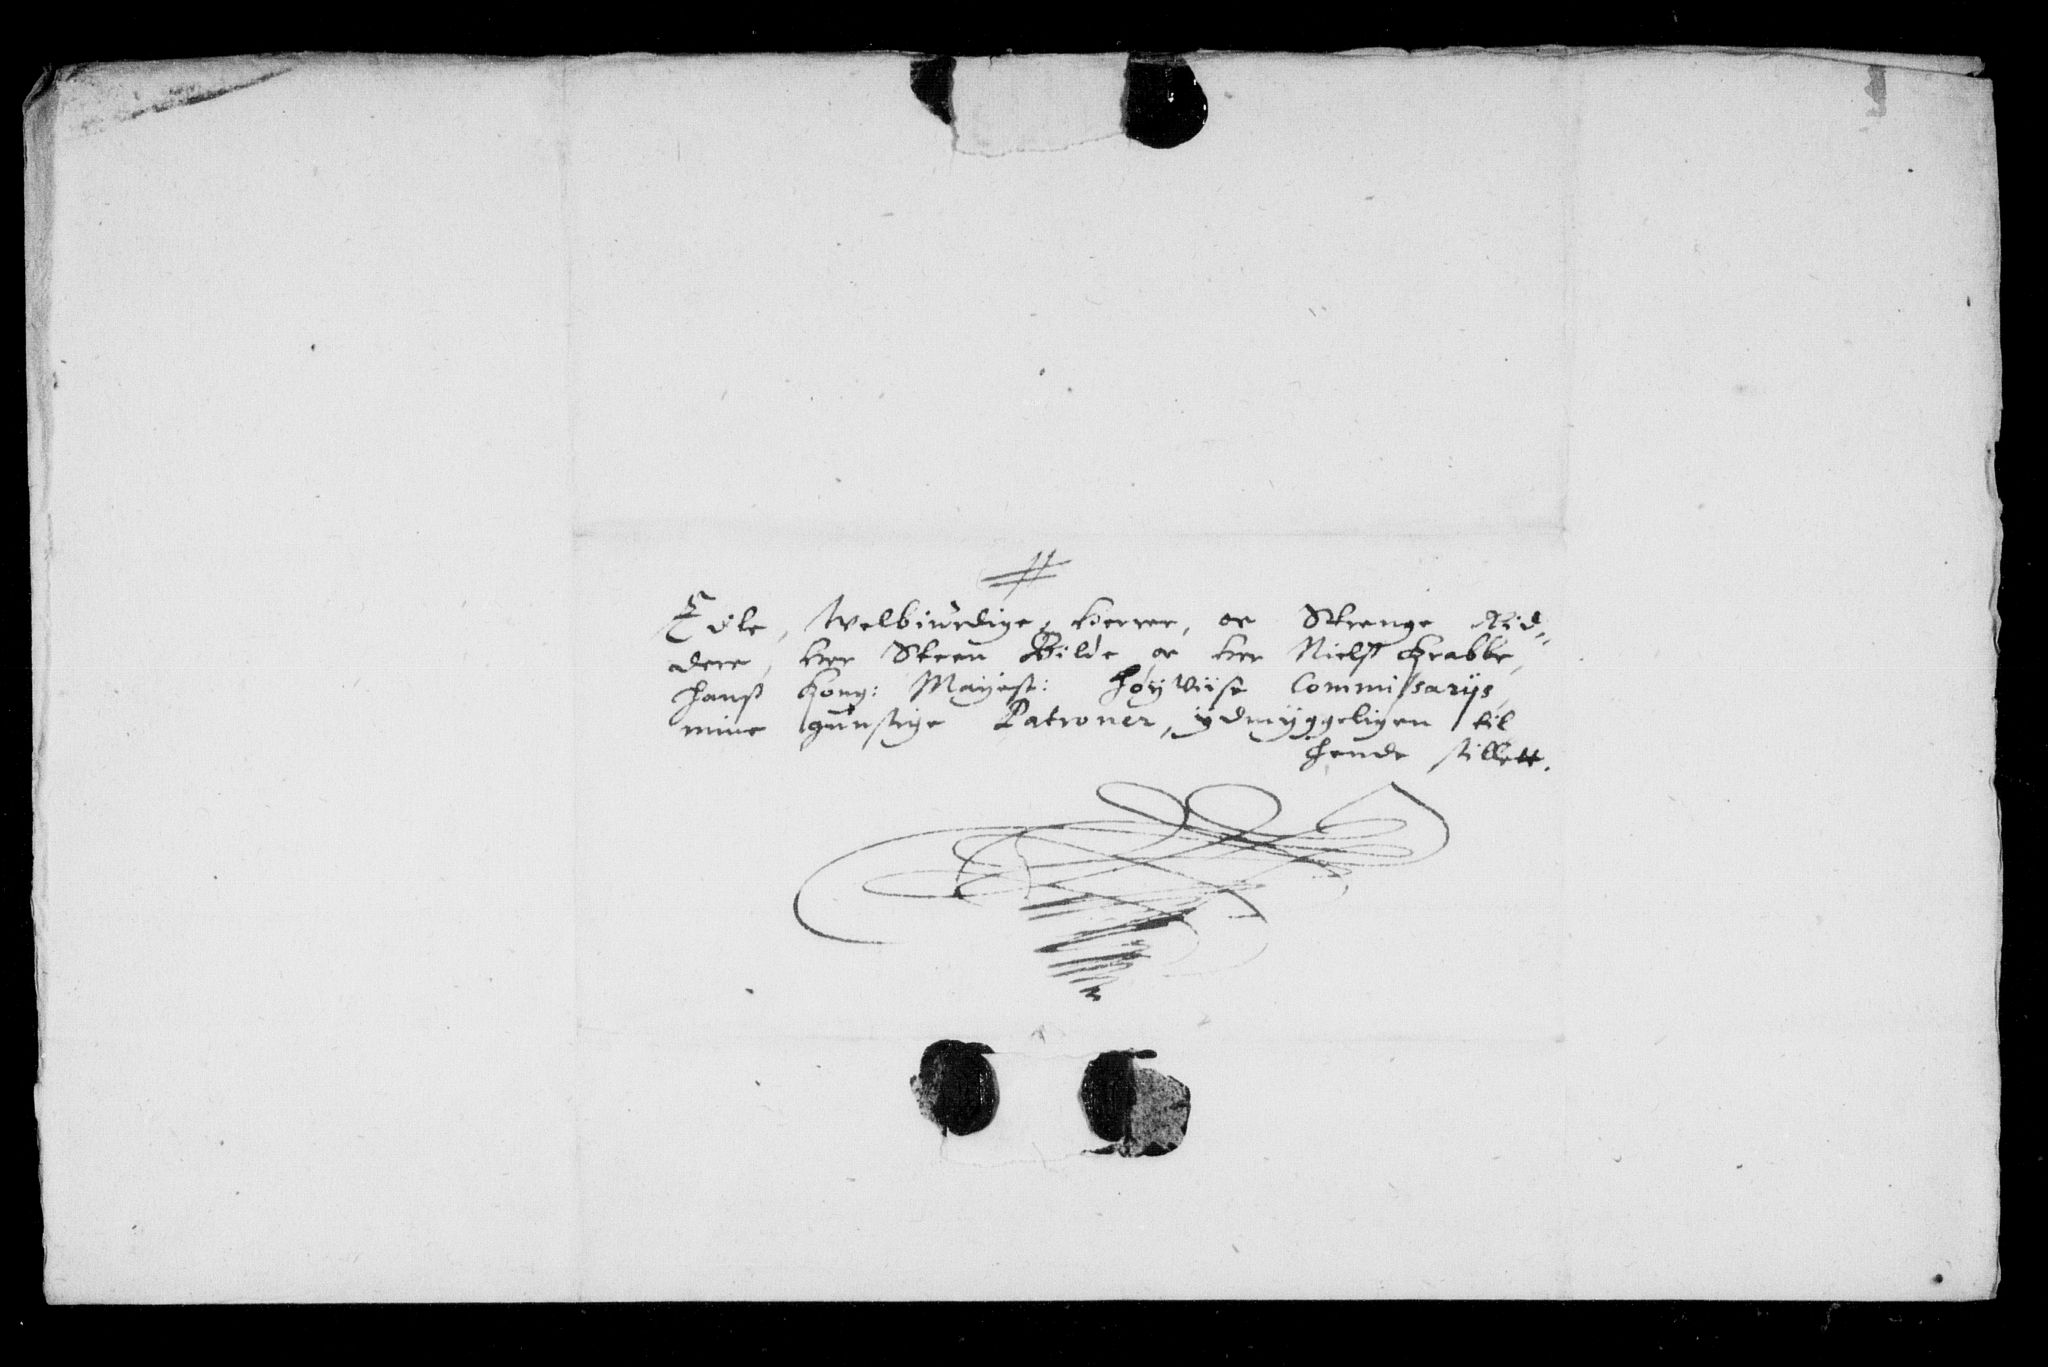 Edle, Welbiurdige, Herrer, oc Strenge Rid„
dere, Her Steen Bilde oc Her Nielß Krabbe,
hanß Kong: Mayest: høyviise Commissarijs,
mine gunstige Patroner, ydmyggeligen til
hende stillett.